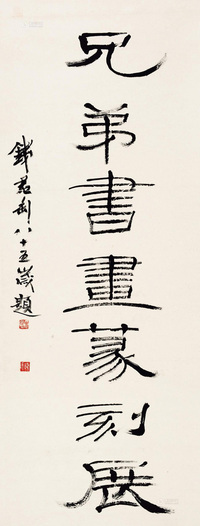 兄弟書畫篆刻展
錢君匋八十五歲題